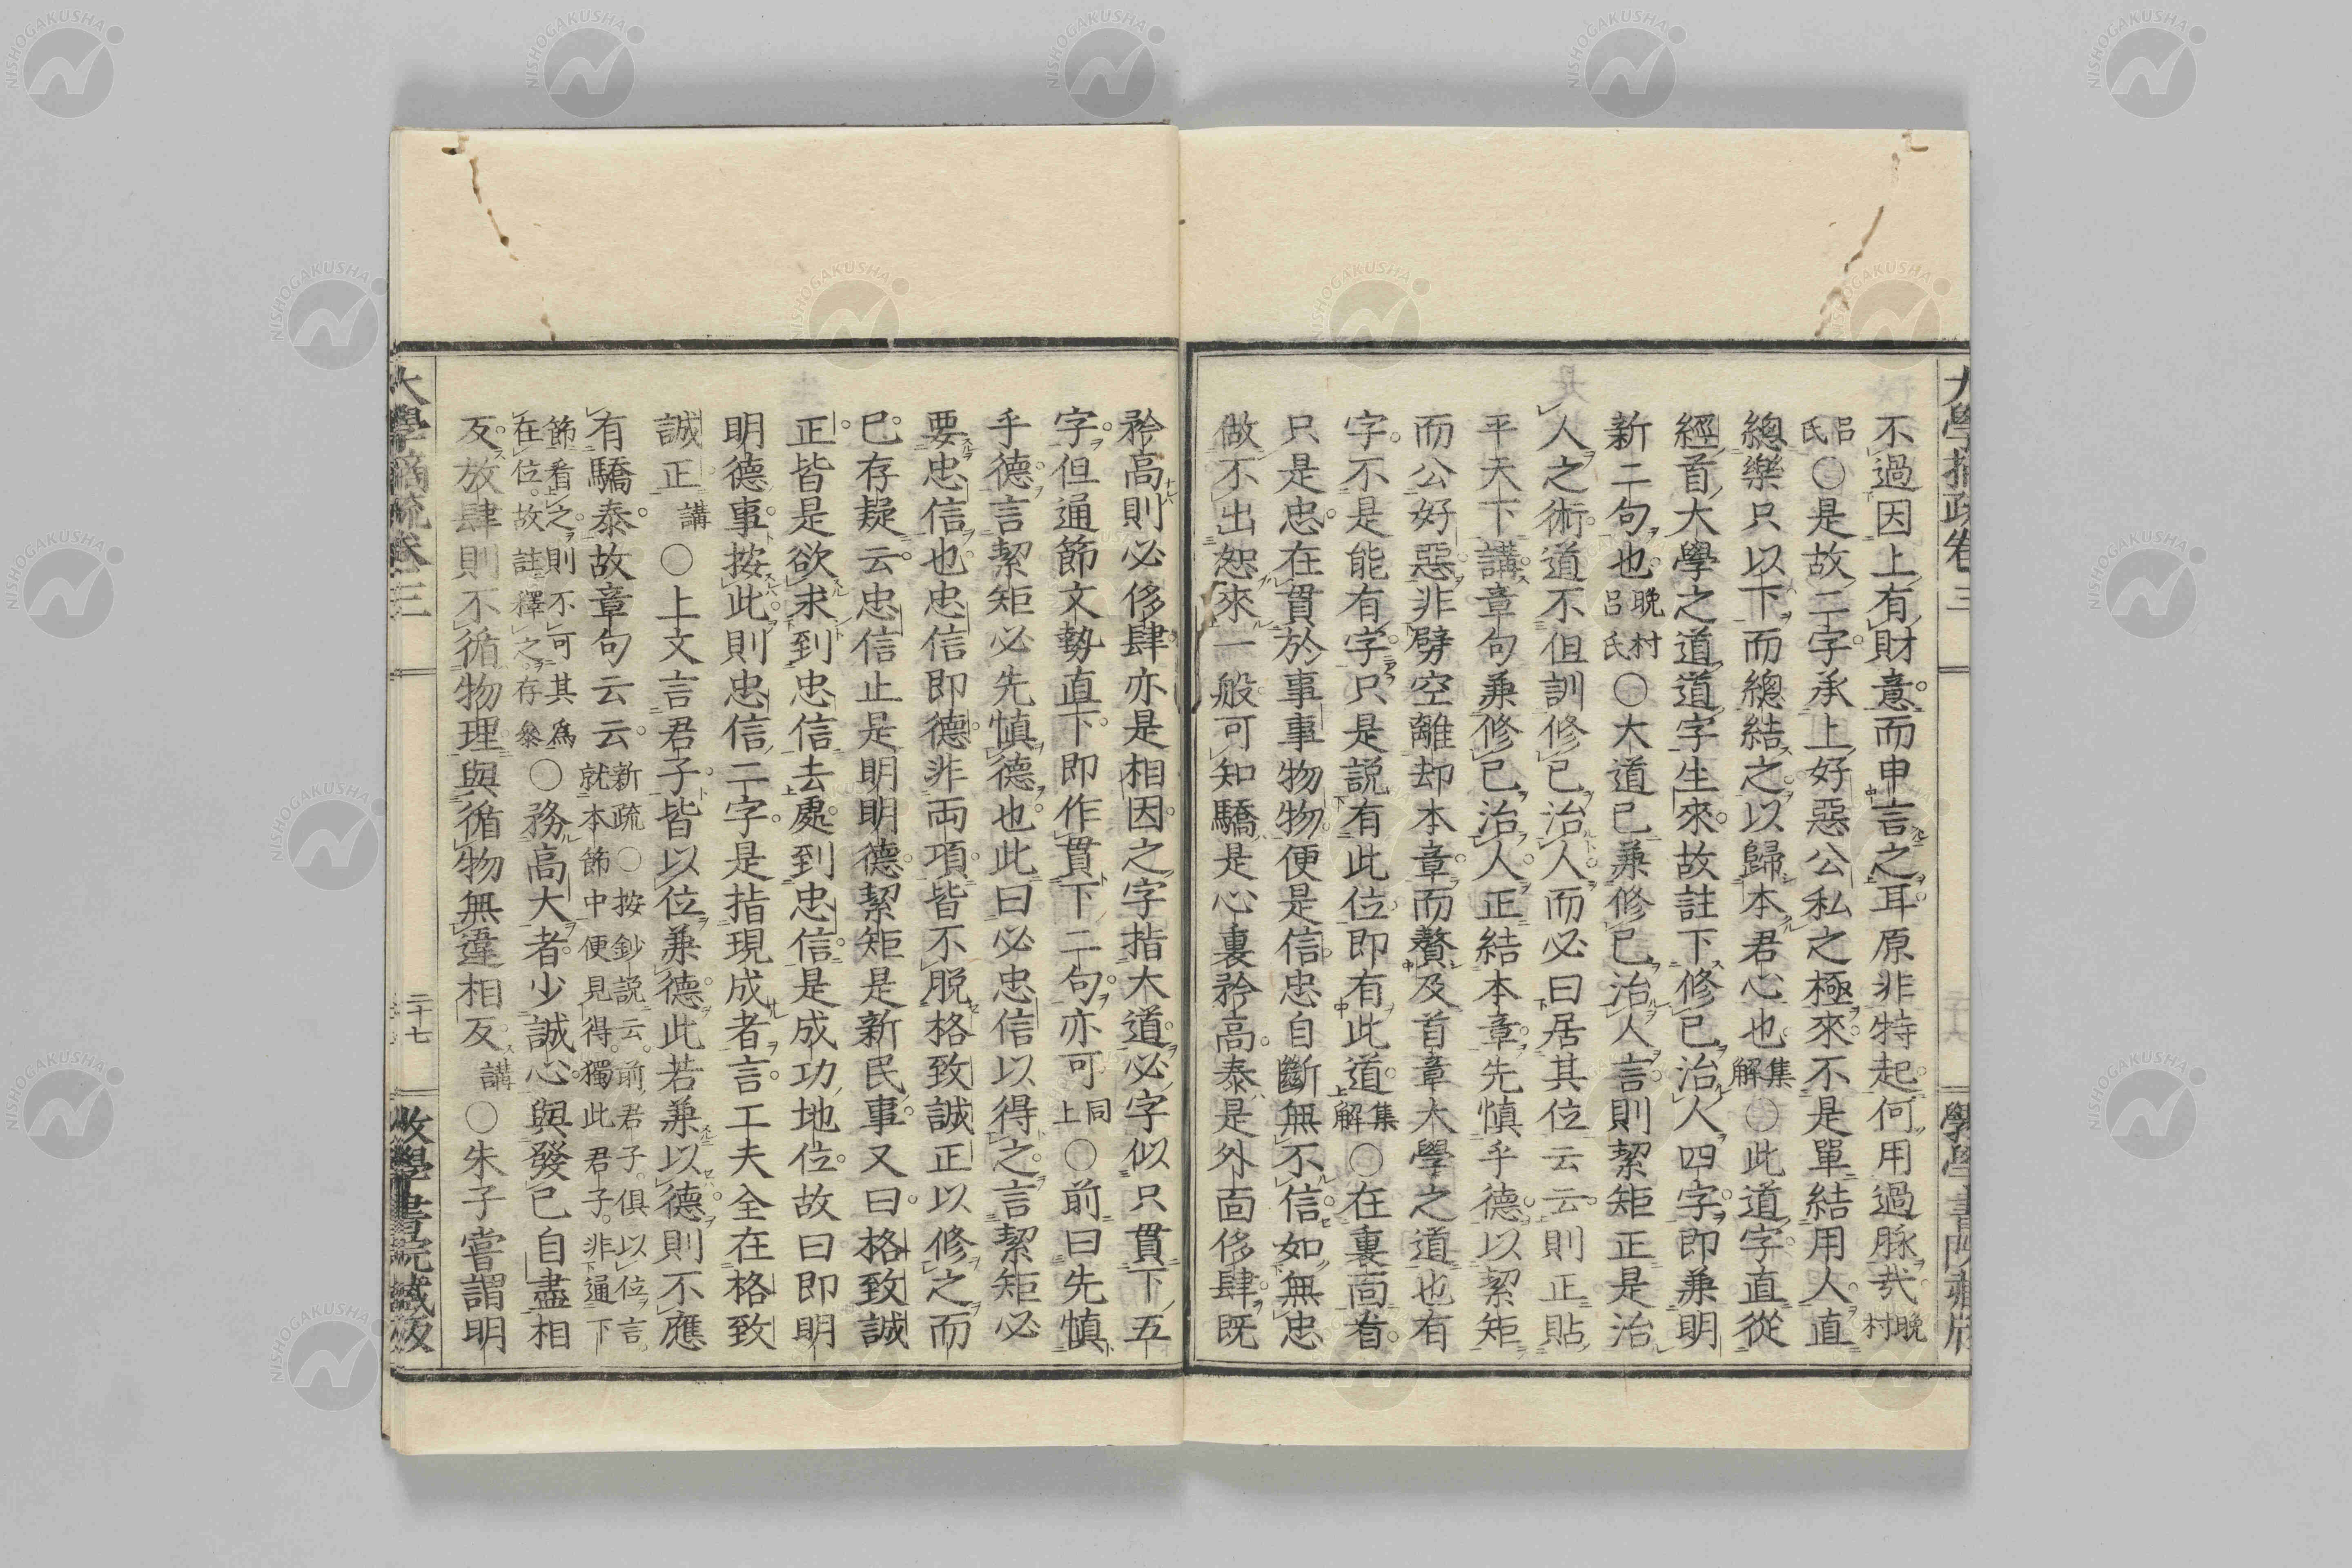 不過因上有財意而申言之耳原非特起何用過脉㢤晩村
呂氏○是故二字承上好惡公私之極來不是單結用人直
總樂只以下而總結之以歸本君心也集解○此道字直從
經首大學之道道字生來故註下修已治人四字即兼明
新二句也晩村呂氏○大道已兼修已治人言則絜矩正是治
人之術道不但訓修已治人而必曰居其位云云則正貼
平天下講章句兼修已治人正結本章先慎乎德以絜矩
而公好惡非劈空離却本章而贅及首章大學之道也有
字不是能有字只是説有此位即有此道集解○在裏面看
只是忠在貫於事事物物便是信忠自斷無不信如無忠
做不出恕來一般可知驕是心裏矜高泰是外面侈肆既
矜高則必侈肆亦是相因之字指大道必字似只貫下五
字但通節文勢直下即作貫下二句亦可同上○前曰先慎
乎德言絜矩必先慎德也此曰必忠信以得之言絜矩必
要忠信也忠信即德非兩項皆不脱格致誠正以修之而
已存疑云忠信止是明明德絜矩是新民事又曰格致誠
正皆是欲求到忠信去處到忠信是成功地位故曰即明
明德事按此則忠信二字是指現成者言工夫全在格致
誠正講○上文言君子皆以位兼德此若兼以德則不應
有驕泰故章句云云新疏○按鈔説云前君子俱以位言
就本節中便見得獨此君子非通下
節看之則不可其爲
在位故註釋之存參○務高大者少誠心與發已自盡相
反放肆則不循物理與循物無違相反講○朱子嘗謂明
大學摘疏卷三
二十七